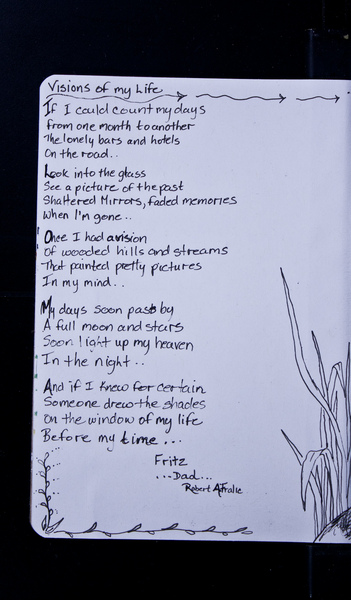 Visions of my Life
If I could count my days
from one month to another
The lonely bars and hotels
On the road..
Look into the glass
See a picture of the past
Shattered Mirrors, faded memories
When I'm gone..
Once I had a vision
Of wooded hills and streams
That painted pretty pictures
In my mind..
My days soon past by
A full moon and stars
Soon light up my heaven
In the night..
And if I knew for certain
Someone drew the shades
on the window of my life
Before my time...
Fritz
...Dad...
Robert A